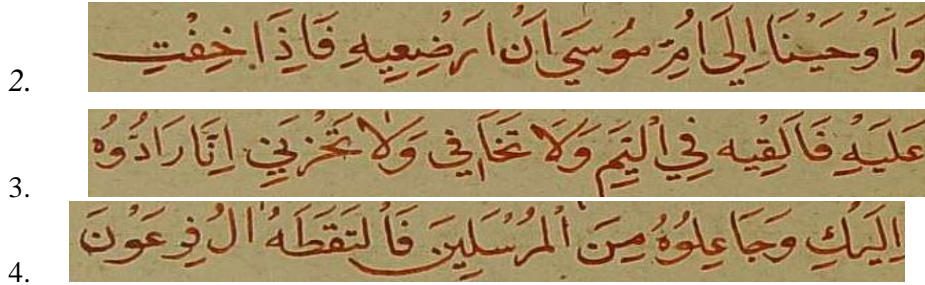 2. وَاَوْحَيْنَا اِلَي اُمِّ مُوسَي اَنْ اَرْضِعِيهِ فَاِذَا خِفْتِ
3. عَلَيْهِ فَاَلْقِيهِ فِي الْيَمِّ وَلَا تَخَافِي وَلَا تَحْزَنِي اِنَّا رَادُّوهُ
4. اِلَيْكِ وَجَاعِلُوهُ مِنَ الْمُرْسَلِينَ فَالْتَقَطَهُ الُ فِرْعَوْنَ